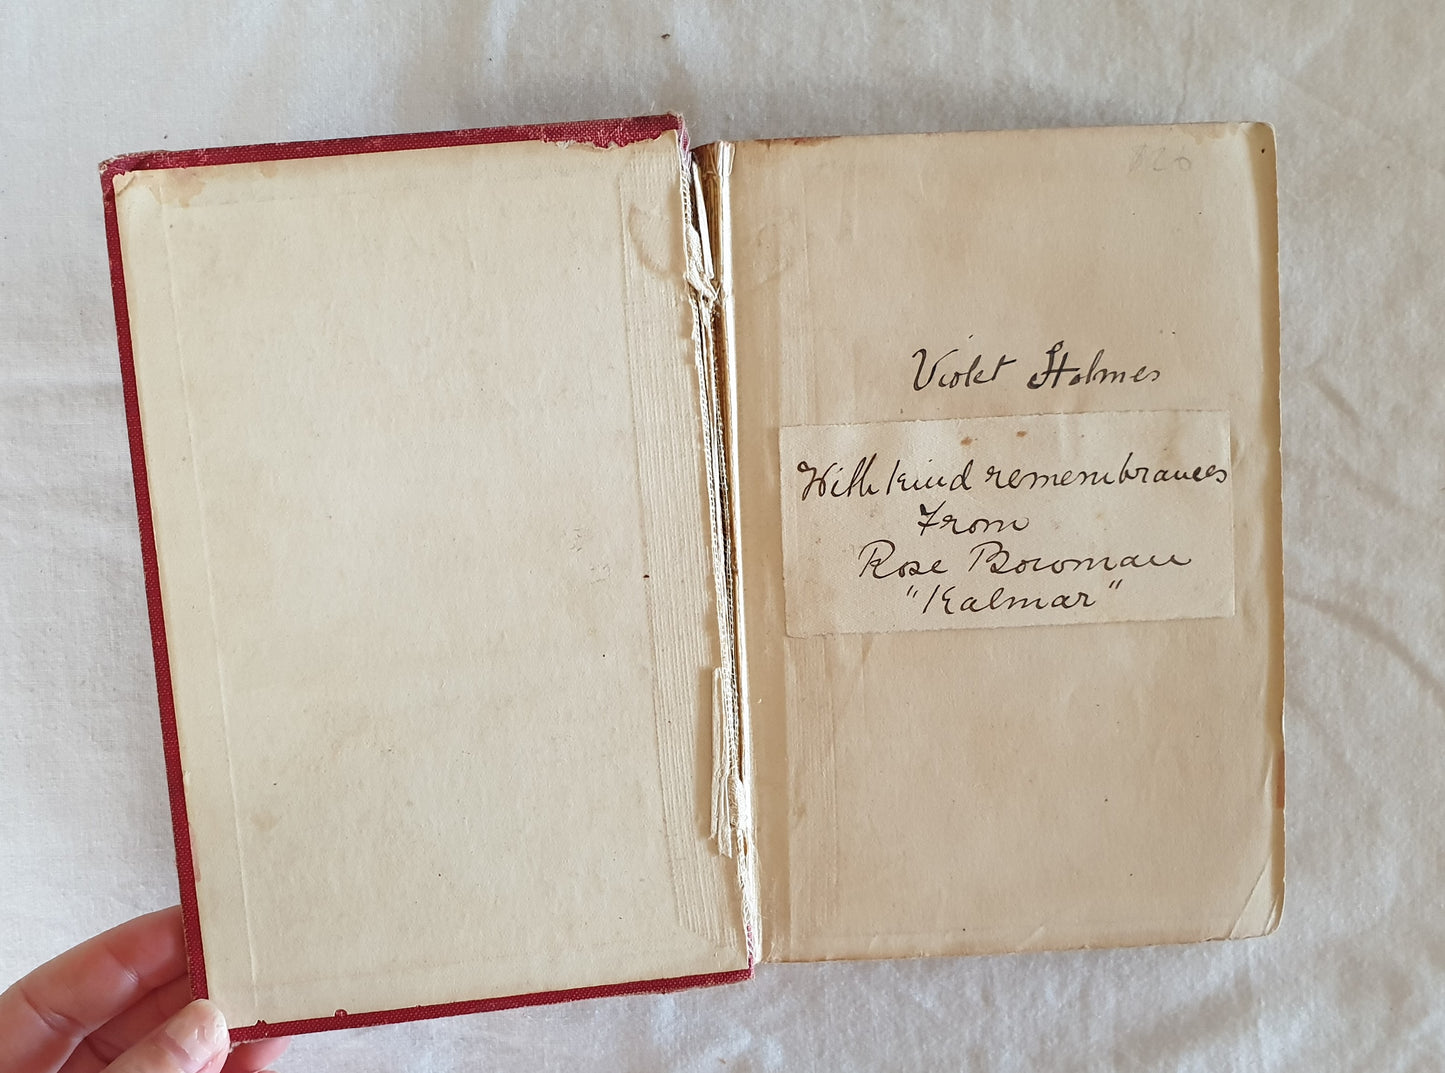 Violet Holmes
With kind remembrances
From
Rose Bowman
"Kalmar"